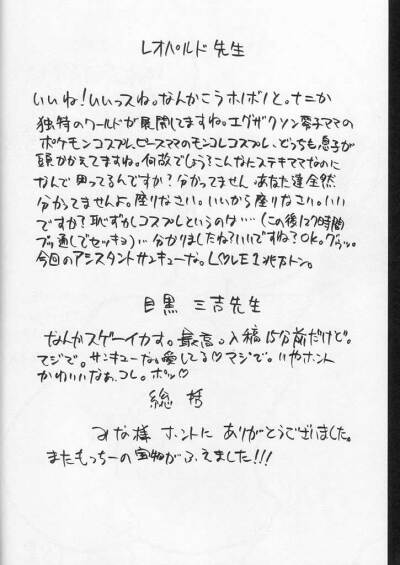 レオパルド先生
いいね!いいっスね。なんかこうホノボノと。ナニか
独特のワールドが展開してますね。エグザクソン零子ママの
ポケモンコスプレ、ピースママのモンコレコスプレ、どっちも息子が
頭かかえてますね。何故でしょう?こんなにステキママなのに
なんで困ってるんですか?分かってません あなた達全然
分かってませんよ。座りなさい。いいから座りなさい。いい
ですか?恥ずかしコスプレというのは…(この後127時間
ブッ通しでセッキョー)…分かりましたね?いいですね?OK。グゥッ。
今回のアシスタントサンキューだ。L♡VE1兆万トン。
目黒 三吉先生
なんかスゲーイカす。最高。入稿15分前だけど。
マジで。サンキューだぁ愛してる♡マジで。いやホント
かわいいなぁ、コレ。ポッ♡
総括
みな様 ホントに ありがとうございました。
またもっちーの宝物がふえました!!!